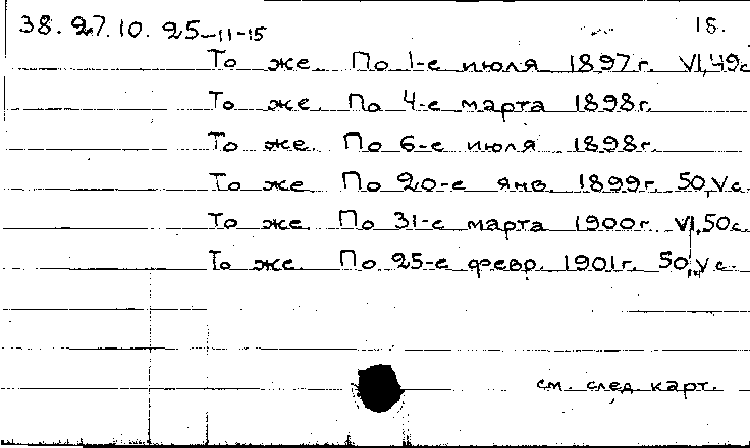 38.27.10.25-11-15 18.
То же. По 1-е июля 1897г. VI,49с
То же. По 4-е марта 1898г.
То же. По 6-е июля 1898г.
То же По 20-е янв. 1899г. 50,Vс.
То же. По 31-с марта 1900г. VI,50с.
То же. По 25-е февр. 1901г. 50,Vс.
см. след. карт.